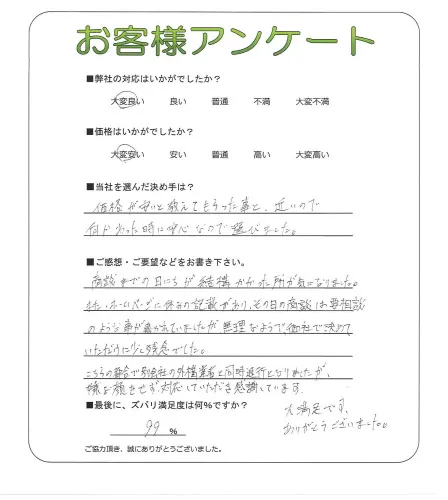 お客様アンケート
■弊社の対応はいかがでしたか？
大変良い 良い 普通 不満 大変不満
■価格はいかがでしたか？
大変安い 安い 普通 高い 大変高い
■当社を選んだ決め手は？
価格が安いと教えてもらった事と、近いので
何かあった時に安心なので選びました。
■ご感想・ご要望などをお書き下さい。
商談までの日にちが結構かかった所が気になりました。
また、ホームページに休みの記載があり、その日の商談は要相談
のような事が書かれていましたが無理なようで御社で決めて
いただけに少し残念でした。
こちらの都合で別会社の外構業者と同時進行となりましたが、
嫌な顔をせず対応していただき感謝しています。
■最後に、ズバリ満足度は何％ですか？
99 %
大満足です。
ありがとうございました。
ご協力頂き、誠にありがとうございました。